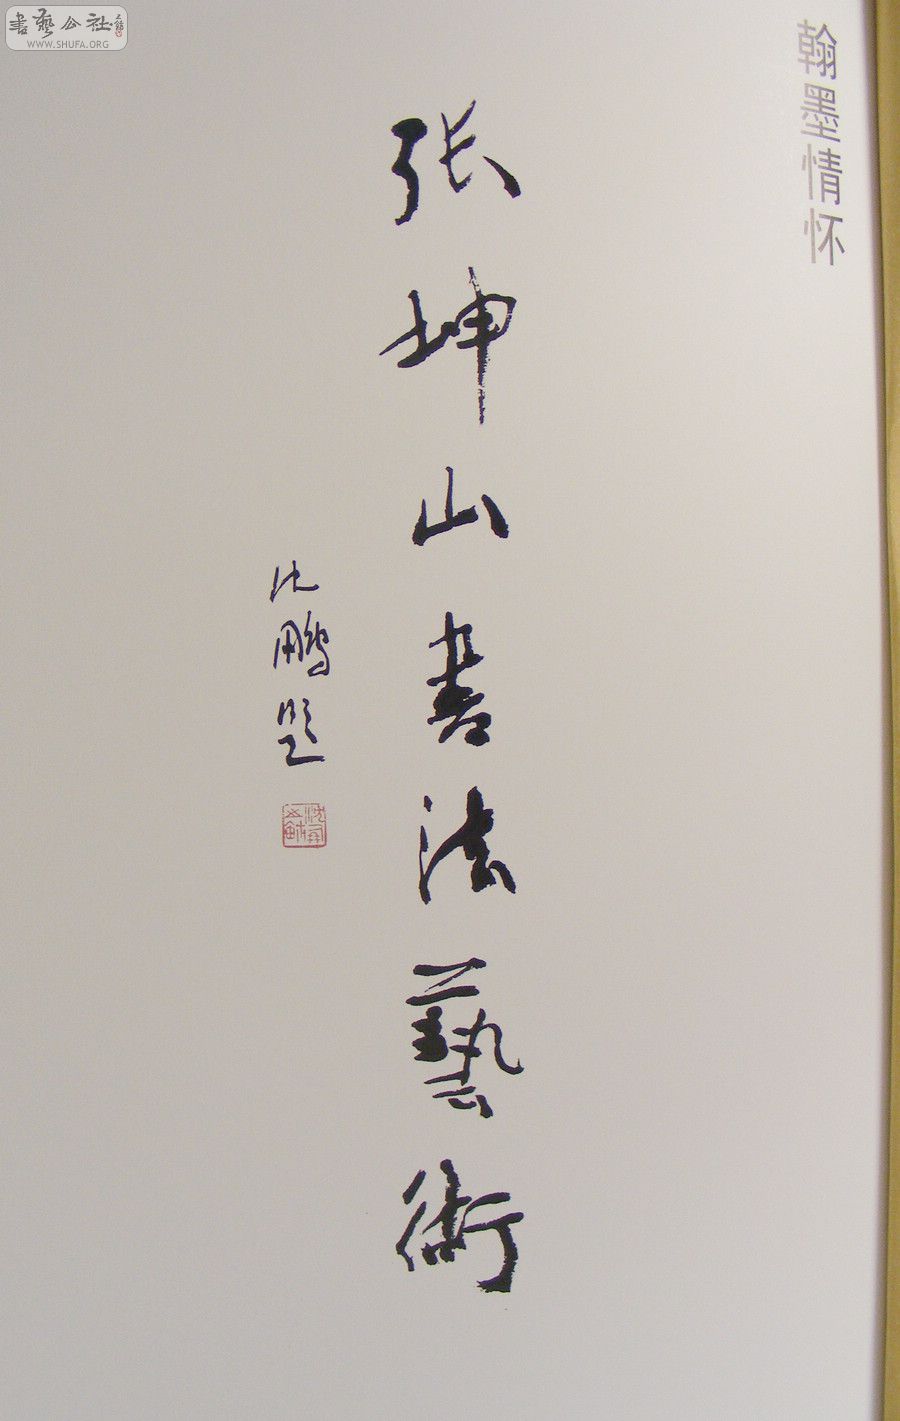 書藝公社
WWW.SHUFA.ORG
翰墨情怀
张坤山书法藝術
沈鹏题